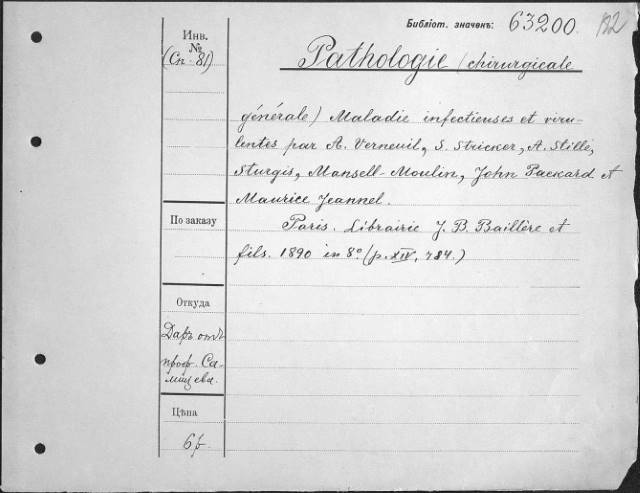 Библіот. значекъ: 63200. 182
Инв.
№
(Сп-81)
Pathologie (chirurgicale
générale) Maladie infectieuses et viru-
lentes par A. Verneuil, S. Stricker, A. Stillé,
Sturgis, Mansell-Moulin, John Packard et
Maurice Jeannel.
По заказу
Paris. Librairie J. B. Baillère et
fils. 1890 in 8º (p. XIV, 784.)
Откуда
Даръ отъ
проф. Са-
мицева.
Цѣна
6 р.